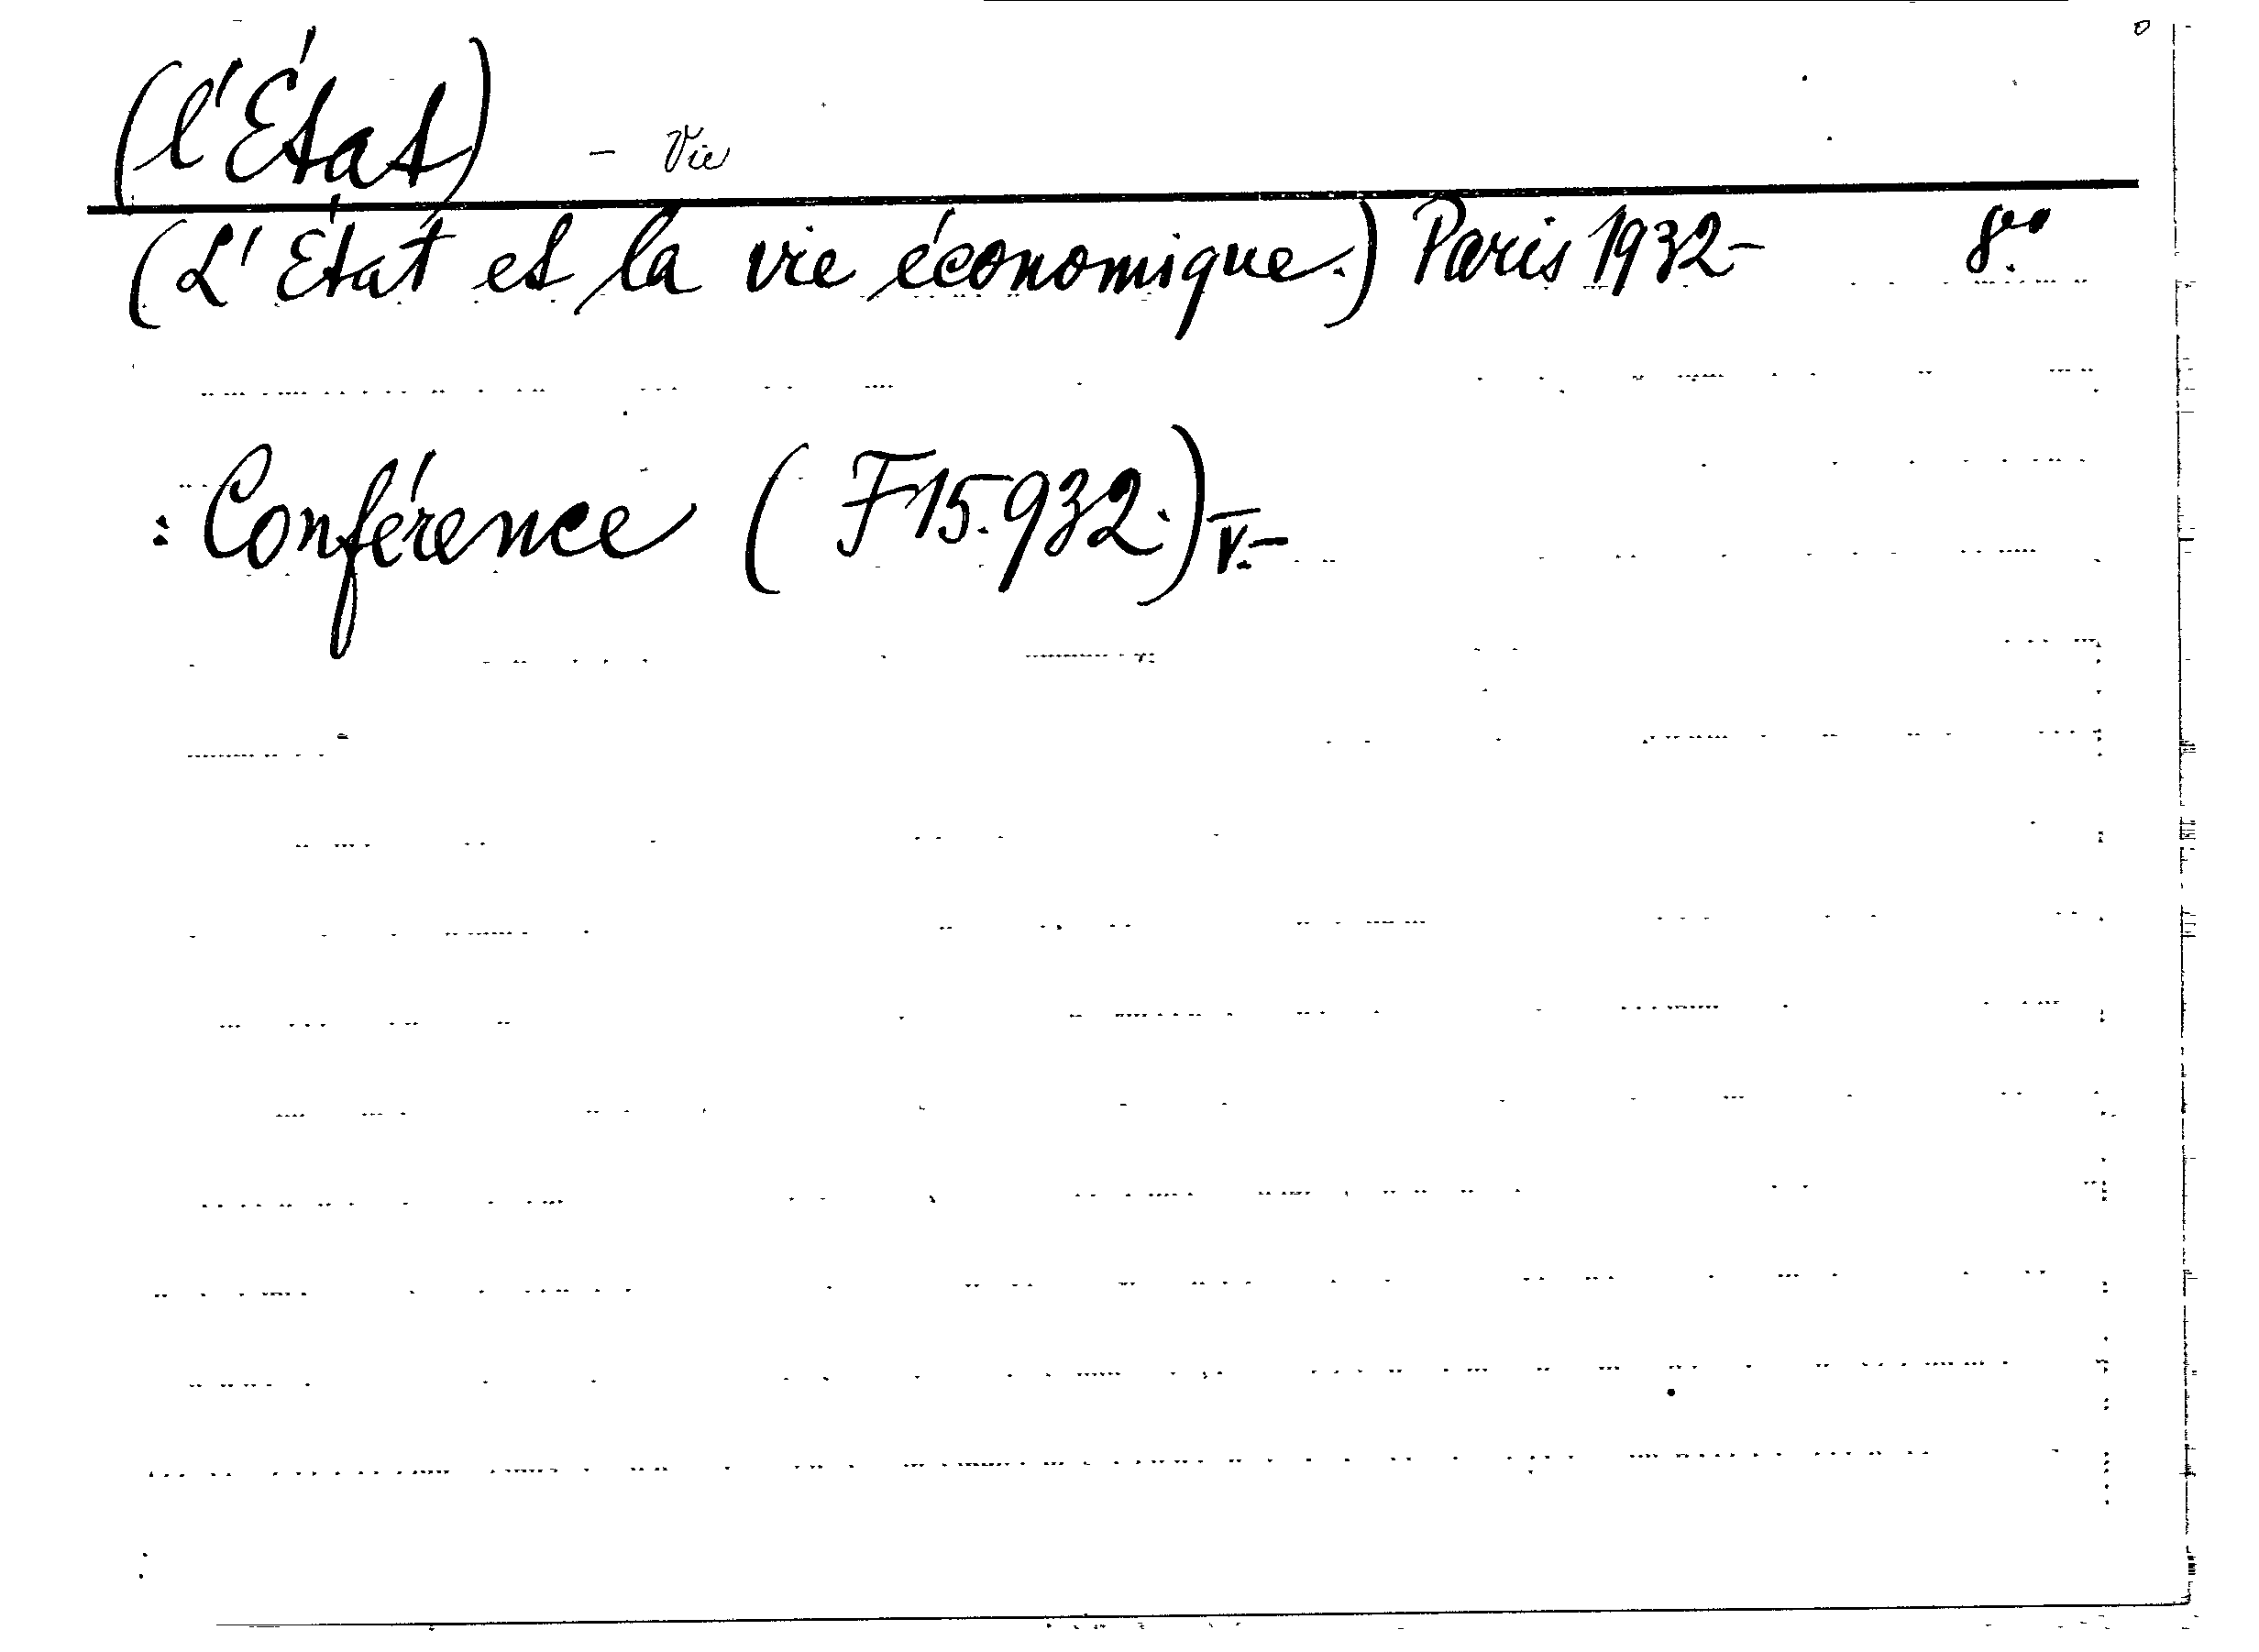 (l'État) - Vie
(L'État et la vie économique.) Paris 1932- 8º.
: Conférence (F 15.932.) V.-